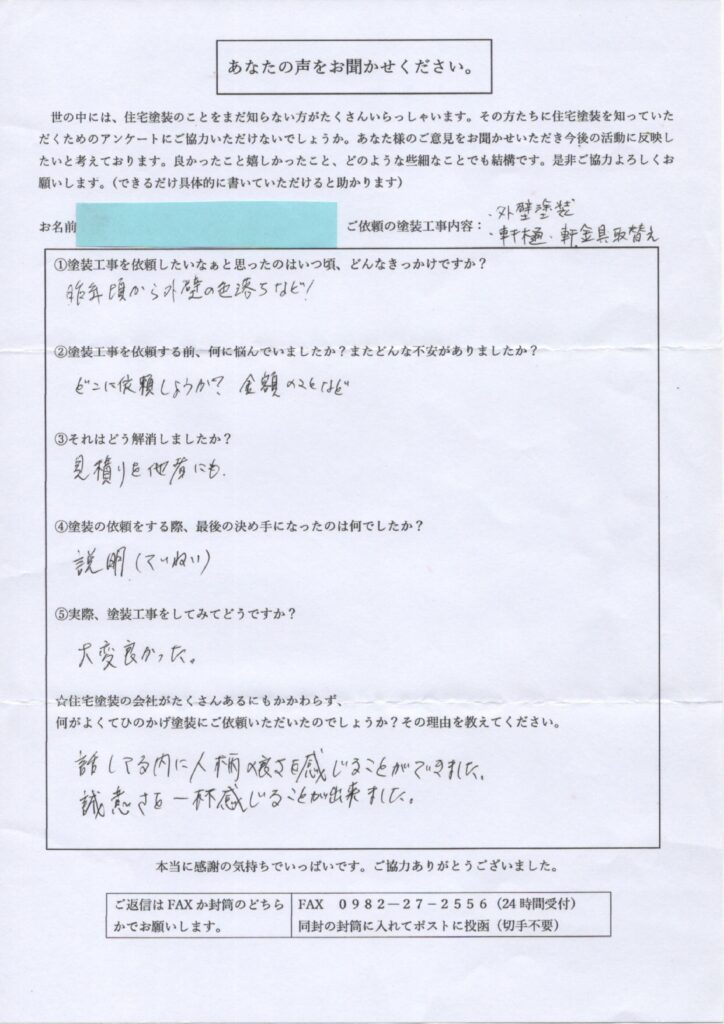 あなたの声をお聞かせください。
世の中には、住宅塗装のことをまだ知らない方がたくさんいらっしゃいます。その方たちに住宅塗装を知っていた
だくためのアンケートにご協力いただけないでしょうか。あなた様のご意見をお聞かせいただき今後の活動に反映し
たいと考えております。良かったこと嬉しかったこと、どのような些細なことでも結構です。是非ご協力よろしくお
願いします。（できるだけ具体的に書いていただけると助かります）
お名前 ご依頼の塗装工事内容：・外壁塗装
・軒樋・軒金具取替え
①塗装工事を依頼したいなぁと思ったのはいつ頃、どんなきっかけですか？
昨年頃から外壁の色落ちなど！
②塗装工事を依頼する前、何に悩んでいましたか？またどんな不安がありましたか？
どこに依頼しようか？ 金額のことなど
③それはどう解消しましたか？
見積りを他者にも.
④塗装の依頼をする際、最後の決め手になったのは何でしたか？
説明（ていねい）
⑤実際、塗装工事をしてみてどうですか？
大変良かった。
☆住宅塗装の会社がたくさんあるにもかかわらず、
何がよくてひのかげ塗装にご依頼いただいたのでしょうか？その理由を教えてください。
話してる内に人柄の良さを感じることができました。
誠意さを一杯感じることが出来ました。
本当に感謝の気持ちでいっぱいです。ご協力ありがとうございました。
ご返信は FAX か封筒のどちら
かでお願いします。
FAX ０９８２―２７－２５５６（24 時間受付）
同封の封筒に入れてポストに投函（切手不要）